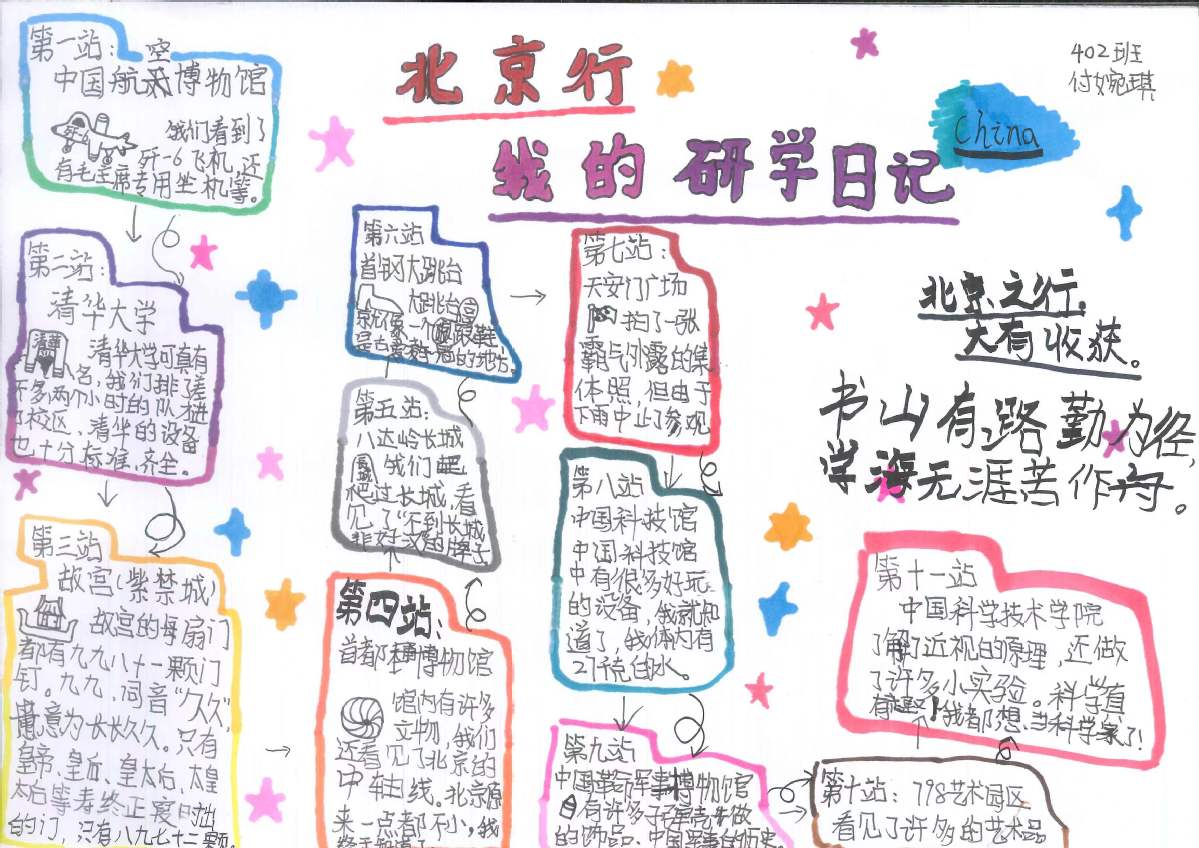 北京行
我的研学日记
402班
付婉琪
China
第一站：空
中国航天博物馆
我们看到了
歼-6飞机，还
有毛主席专用坐机等。
歼-6
第二站：
清华大学
清华
清华大学可真有
名，我们排了差
不多两个小时的队才进
了校区，清华的设备
也十分标准，齐全。
第三站
故宫（紫禁城）
故宫的每扇门
都有九九八十一颗门
钉。九九，同音“久久”，
寓意为长长久久。只有
皇帝、皇后、皇太后、太皇
太后等寿终正寝时出
的门，只有八九七十二颗。
第四站：
首都博物馆
馆内有许多
文物，我们
还看见了北京的
中轴线。北京原
来一点都不小，我
第五站：
八达岭长城
我们
爬过长城，看
见了“不到长城
非好汉”的牌子。
第六站
首钢大跳台
大跳台
就像一个
跟鞋，
的地方。
第七站：
天安门广场
拍了一张
霸气外露的集
体照，但由于
下雨中止了参观
第八站
中国科技馆
中国科技馆
中有很多好玩
的设备，我就知
道了，我体内有
27千克的水。
第九站
中国革命军事博物馆
有许多子弹壳做
的饰品、中国军事的历史。
第十站：798艺术园区
看见了许多的艺术品
第十一站
中国科学技术学院
了解了近视的原理，还做
了许多小实验。科学真
有趣！我都想当科学家了！
北京之行，
大有收获。
书山有路勤为径，
学海无涯苦作舟。